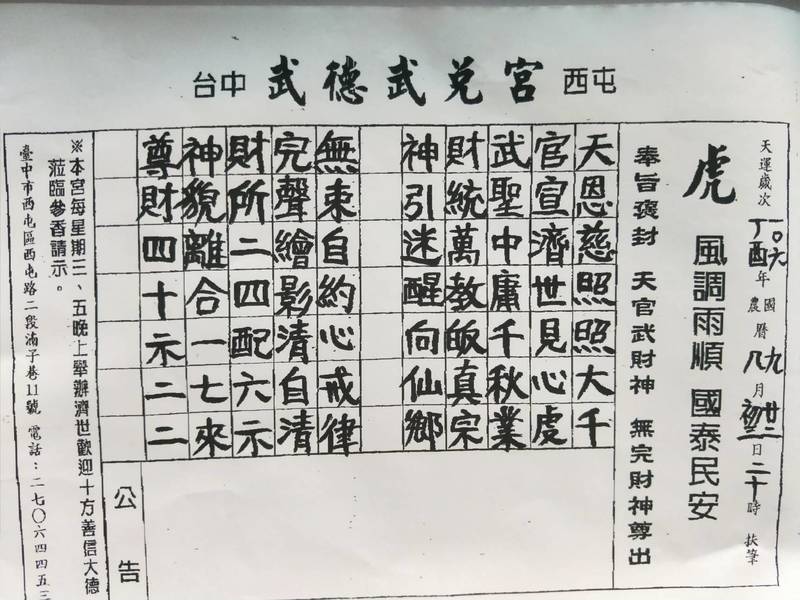 台中 武德武兌宮 西屯
天運歲次丁酉一〇六年國曆九月廿二日二十時 扶筆
農曆八月初三
虎 風調雨順 國泰民安
奉旨褒封 天官武財神 無完財神尊出
天恩慈照照大千
官宣濟世見心虔
武聖中庸千秋業
財統萬教皈真宗
神引迷醒向仙鄉
無束自約心戒律
完聲繪影清自清
財所二四配六示
神貌離合一七來
尊財四十示二二
公告
※本宮每星期三、五晚上舉辦濟世歡迎十方善信大德
蒞臨參香請示。
臺中市西屯區西屯路二段湳子巷11號 電話：二七〇六四四五三